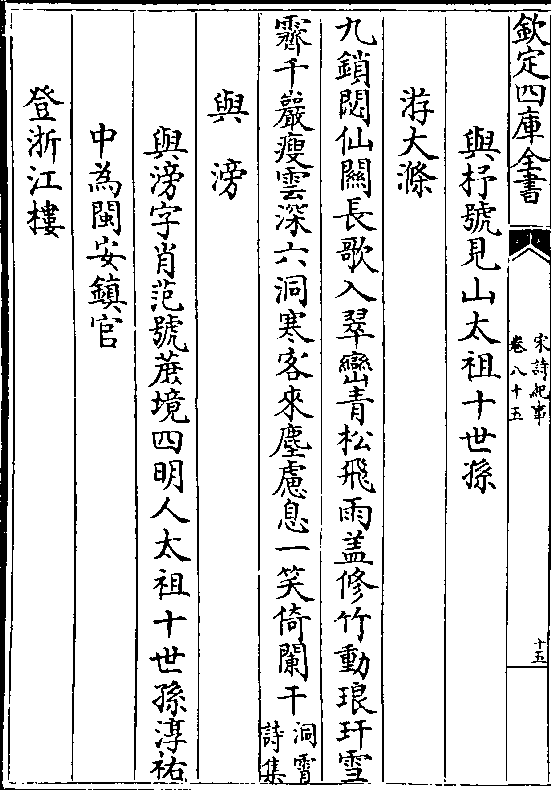 欽定四庫全書
宋詩紀事
卷八十五
十五
與抒號見山太祖十世孫
游大滌
九鎖閟仙關長歌入翠巒青松飛雨蓋修竹動琅玕雪
霽千巖瘦雲深六洞寒客來塵慮息一笑倚闌干洞霄
詩集
與滂
與滂字肖范號蔗境四明人太祖十世孫淳祐
中為閩安鎮官
登浙江樓